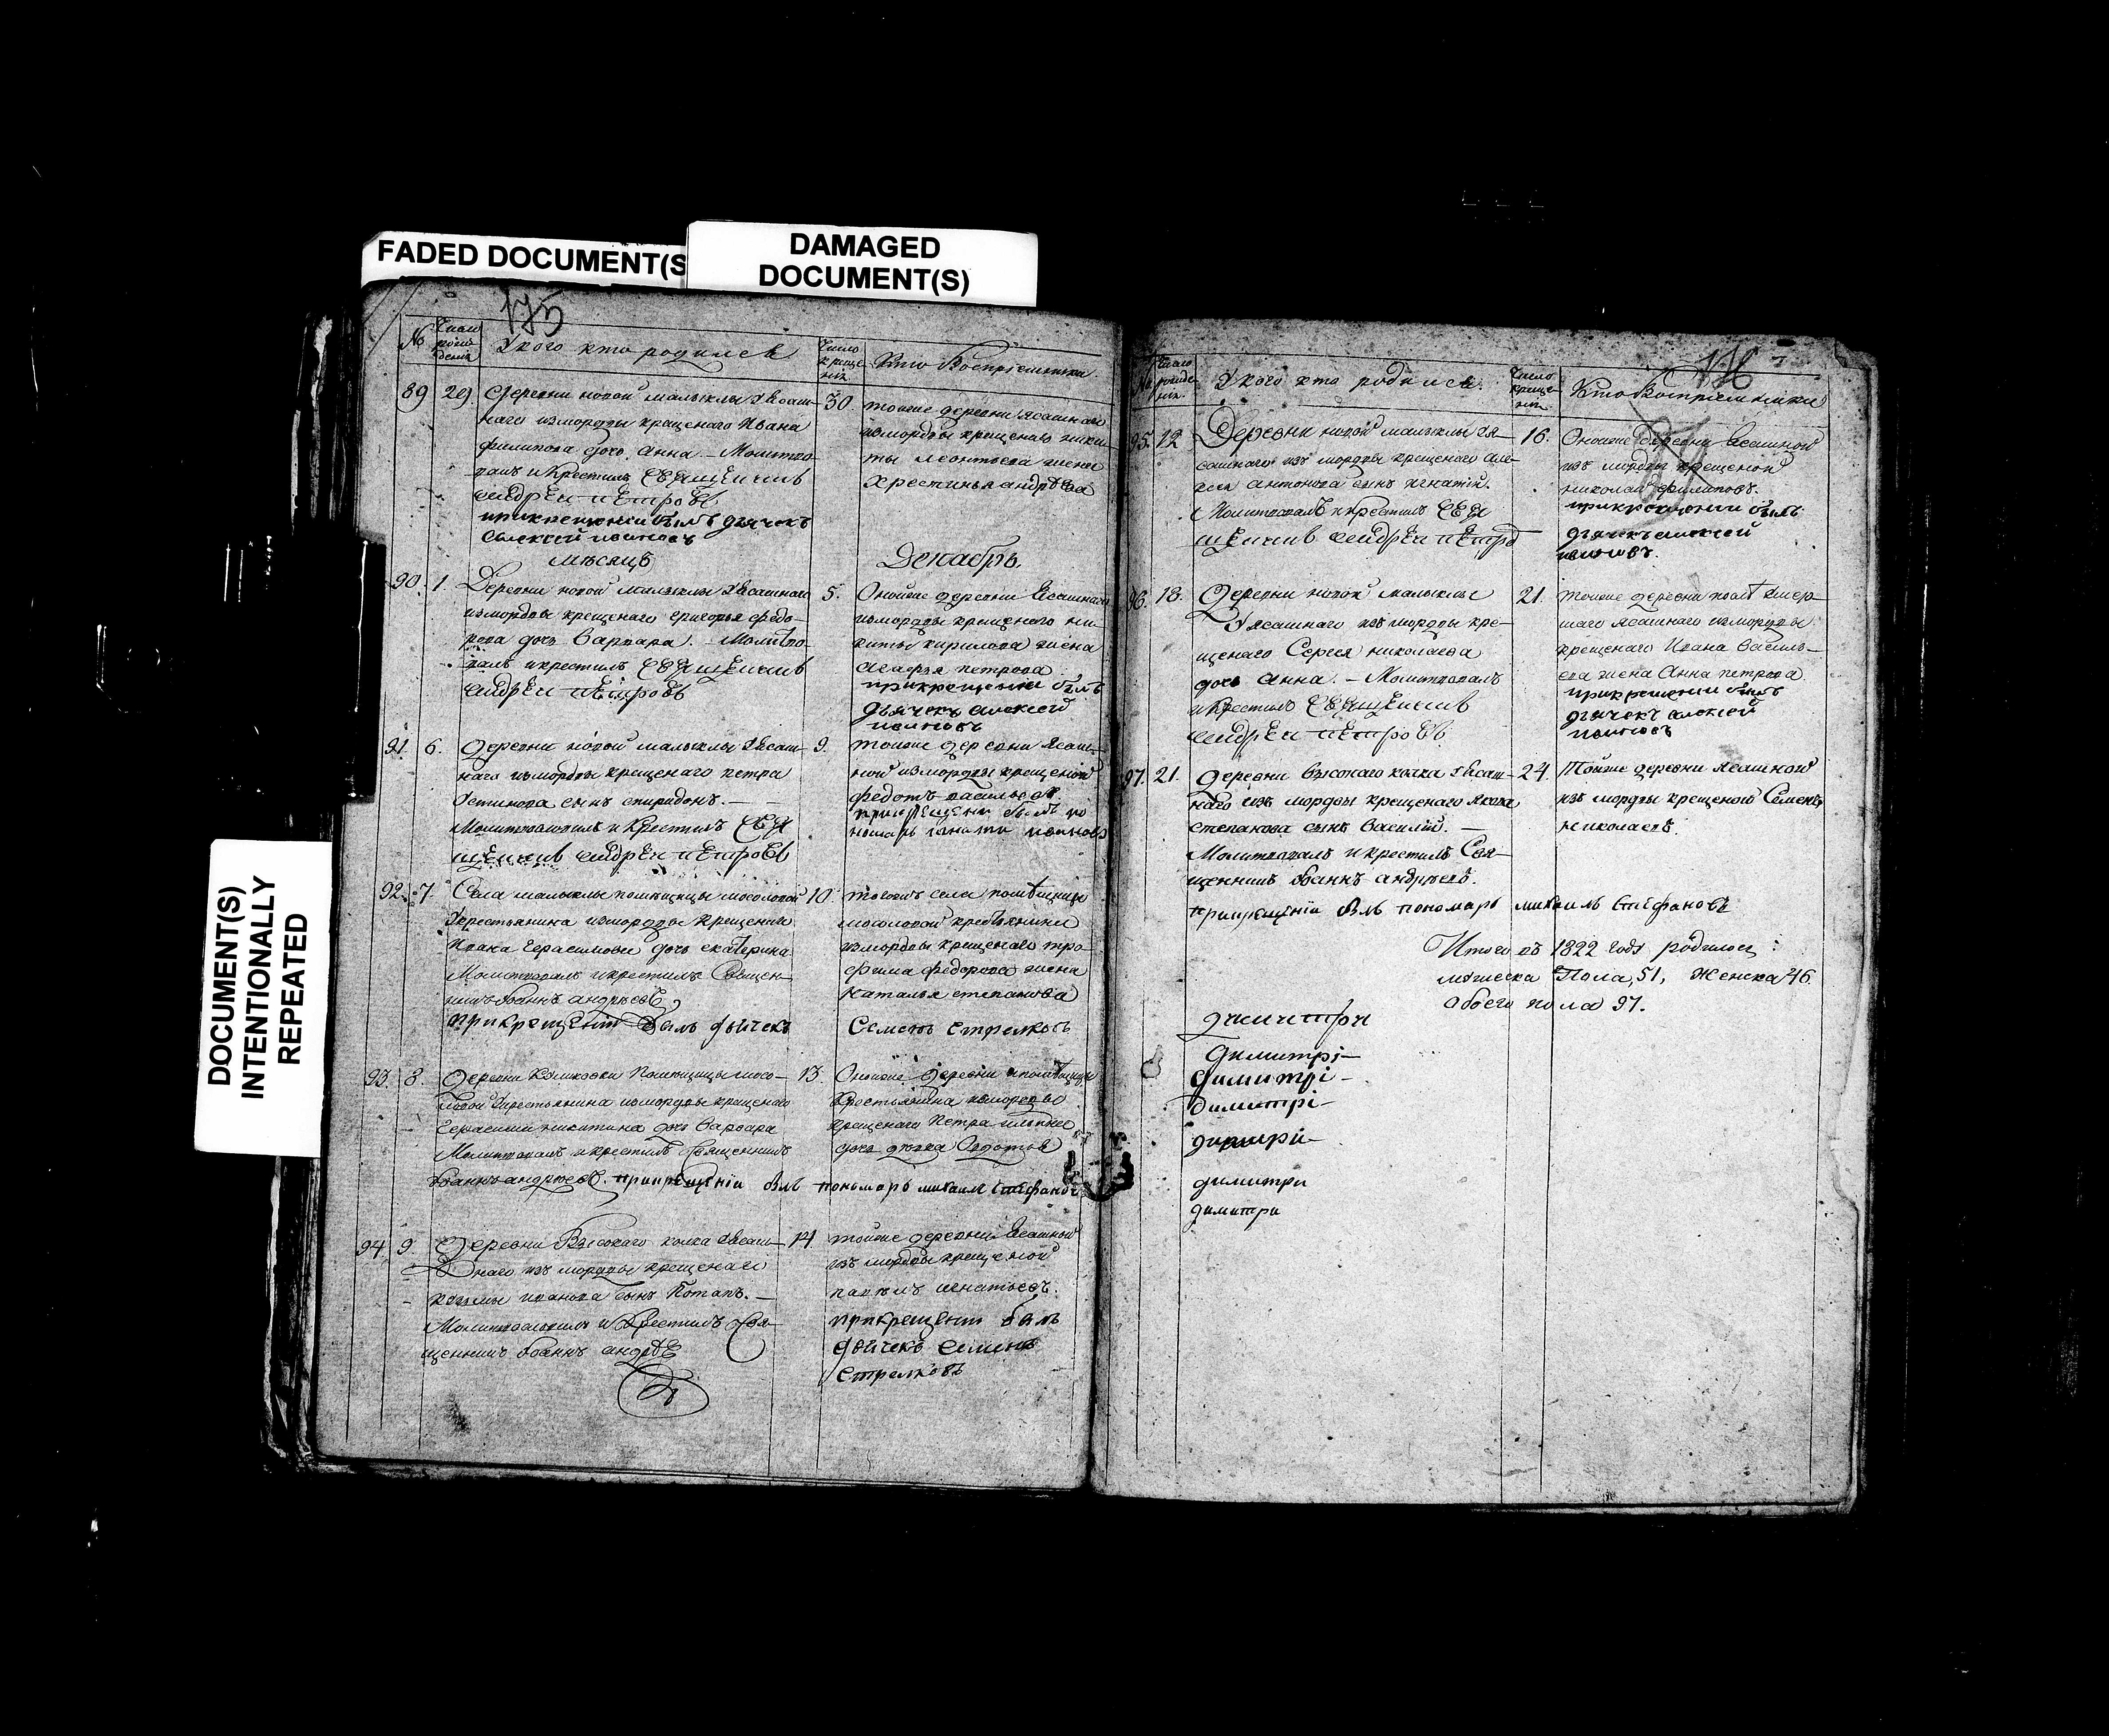 FADED DOCUMENT(S
DAMAGED
DOCUMENT(S)
DOCUMENT(S)
INTENTIONALLY
REPEATED
175
№ Число рожде
У кого кто родился
Число креще нія
Кто Воспріемники
89 29. Деревни новой малыклы Ясаш-
наго измордвы крещенаго Ивана
филипова дочь Анна. – Молитво
валъ и Крестилъ Священникъ
Андрей Петровъ
прикрещеніи былъ дьячекъ
Алексей ивановъ
30 тойже деревни ясашнаго
измордвы крещенаго ники-
ты леонтьева жена
Хрестинья андрѣева
мѣсяцъ Декабрь.
90. 1. Деревни новой малыклы Ясашнаго
измордвы крещенаго григорья федо-
рова дочь Варвара. – Молитво-
валъ и крестилъ Священникъ
Андрей Петровъ
5. Оной же деревни Ясашнаго
измордвы крещенаго ни-
киты кирилова жена
Агафья петрова
прикрещеніи былъ
дьячекъ алексей
ивановъ
91. 6. Деревни новой малыклы Ясаш-
наго измордвы крещенаго петра
Устинова сынъ спиридонъ. –
Молитвовалъ и Крестилъ Свя
щенникъ Андрей Петровъ
9. тойже деревни Ясаш-
ной измордвы крещеной
федотъ васильевъ
прикрещеніи былъ по
номарь игнати ивановъ
92. 7. Села малыклы помѣщицы мосоловой
Крестьянина измордвы крещенаго
Ивана Герасимова дочь екатерина
Молитвовалъ и крестилъ Священ-
никъ Иоаннъ андрѣевъ
прикрещеніи былъ дьячекъ
10. тогожъ села помѣщицы
мосоловой крестьянина
измордвы крещенаго тро-
фима федорова жена
наталья степанова
Семенъ Стрелковъ
93. 8. Деревни Помѣщицы мосо-
ловой Крестьянина измордвы крещенаго
Герасима никитина дочь варвара
Молитвовалъ и крестилъ Священникъ
Иоаннъ андрѣевъ. прикрещеніи былъ пономарь михаилъ Стефановъ
13. Оной же деревни помѣщицы
Крестьянина измордвы
крещенаго Петра
дочь девка Авдотья
94. 9. Деревни Высокаго колка Ясаш-
наго изъ мордвы крещенаго
козмы иванова сынъ Потапъ. –
Молитвовалъ и Крестилъ Свя-
щенникъ Иоаннъ андрѣевъ
14 тойже деревни Ясашной
изъ мордвы крещеной
павелъ игнатьевъ.
прикрещеніи былъ
дьячекъ Семенъ
Стрелковъ
176
№ Число рожде нія
У кого кто родился.
Число креще нія
Кто Воспріемники
95. 12. Деревни новой малыклы Я-
сашнаго изъ мордвы крещенаго але-
ксея антонова сынъ игнатій.
Молитвовалъ и крестилъ Свя
щенникъ Андрей Петро
16. Оной же деревни Ясашной
изъ мордвы крещеной
николай филиповъ.
прикрещеніи былъ
дьячекъ алексей
ивановъ.
96. 18. Деревни новой малыклы
Ясашнаго изъ мордвы кре-
щенаго Сергея николаева
дочь Анна. – Молитвовалъ
и Крестилъ Священникъ
Андрей Петровъ
21. тойже деревни
ясашнаго измордвы
крещенаго Ивана Василь-
ева жена Анна петрова
прикрещеніи былъ
дьячекъ алексей
ивановъ
97. 21. Деревни высокаго колка Ясаш-
наго изъ мордвы крещенаго Якова
степанова сынъ Василій. –
Молитвовалъ и крестилъ Свя-
щенникъ Иоаннъ андрѣевъ.
24. Тойже деревни Ясашной
изъ мордвы крещеной Семенъ
николаевъ.
прикрещеніи былъ пономарь михаилъ Стефановъ
Итого въ 1822 году родилось:
мужеска Пола, 51, Женска 46
обоего пола 97.
димитри
димитрі–
димитрі–
димитрі–
димитри–
димитри
димитри